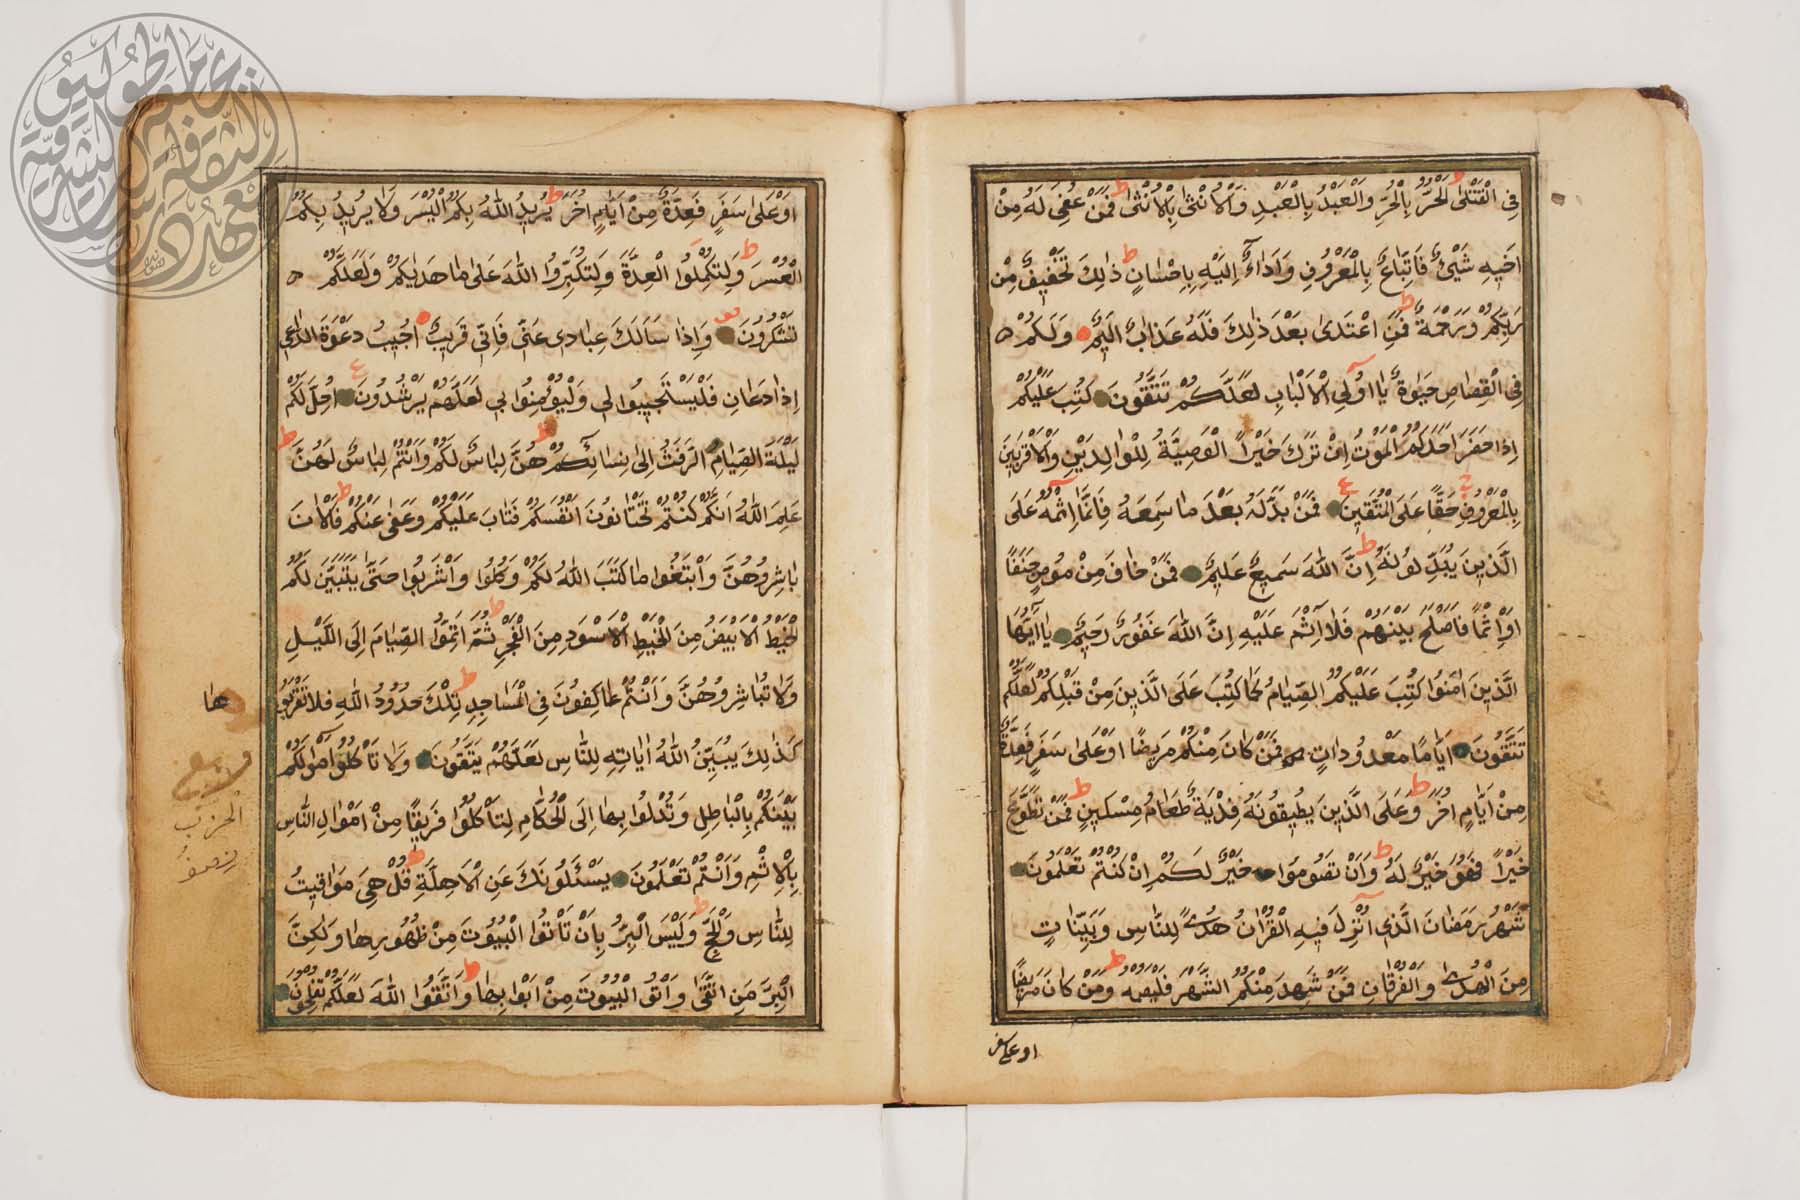 فِي الْقَتْلٰى الْحُرُّ بِالْحُرِّ وَالْعَبْدُ بِالْعَبْدِ وَالْاُنْثٰى بِالْاُنْثٰى فَمَنْ عُفِيَ لَهُ مِنْ
اَخِيهِ شَيْئٌ فَاتِّبَاعٌ بِالْمَعْرُوفِ وَاَدَاءٌ اِلَيْهِ بِاِحْسَانٍ ذٰلِكَ تَخْفِيفٌ مِنْ
رَبِّكُمْ وَرَحْمَةٌ فَمَنِ اعْتَدٰى بَعْدَ ذٰلِكَ فَلَهُ عَذَابٌ اَلِيمٌ وَلَكُمْ
فِي الْقِصَاصِ حَيٰوةٌ يَا اُولِي الْاَلْبَابِ لَعَلَّكُمْ تَتَّقُونَ كُتِبَ عَلَيْكُمْ
اِذَا حَضَرَ اَحَدَكُمُ الْمَوْتُ اِنْ تَرَكَ خَيْرًا الْوَصِيَّةُ لِلْوَالِدَيْنِ وَالْاَقْرَبِينَ
بِالْمَعْرُوفِ حَقًّا عَلَى الْمُتَّقِينَ فَمَنْ بَدَّلَهُ بَعْدَ مَا سَمِعَهُ فَاِنَّمَا اِثْمُهُ عَلَى
الَّذِينَ يُبَدِّلُونَهُ اِنَّ اللّٰهَ سَمِيعٌ عَلِيمٌ فَمَنْ خَافَ مِنْ مُوصٍ جَنَفًا
اَوْ اِثْمًا فَاَصْلَحَ بَيْنَهُمْ فَلَا اِثْمَ عَلَيْهِ اِنَّ اللّٰهَ غَفُورٌ رَحِيمٌ يَا اَيُّهَا
الَّذِينَ اٰمَنُوا كُتِبَ عَلَيْكُمُ الصِّيَامُ كَمَا كُتِبَ عَلَى الَّذِينَ مِنْ قَبْلِكُمْ لَعَلَّكُمْ
تَتَّقُونَ اَيَّامًا مَعْدُودَاتٍ فَمَنْ كَانَ مِنْكُمْ مَرِيضًا اَوْ عَلٰى سَفَرٍ فَعِدَّةٌ
مِنْ اَيَّامٍ اُخَرَ وَعَلَى الَّذِينَ يُطِيقُونَهُ فِدْيَةٌ طَعَامُ مِسْكِينٍ فَمَنْ تَطَوَّعَ
خَيْرًا فَهُوَ خَيْرٌ لَهُ وَاَنْ تَصُومُوا خَيْرٌ لَكُمْ اِنْ كُنْتُمْ تَعْلَمُونَ
شَهْرُ رَمَضَانَ الَّذِي اُنْزِلَ فِيهِ الْقُرْاٰنُ هُدًى لِلنَّاسِ وَبَيِّنَاتٍ
مِنَ الْهُدٰى وَالْفُرْقَانِ فَمَنْ شَهِدَ مِنْكُمُ الشَّهْرَ فَلْيَصُمْهُ وَمَنْ كَانَ مَرِيضًا
او على سفر
اَوْ عَلٰى سَفَرٍ فَعِدَّةٌ مِنْ اَيَّامٍ اُخَرَ يُرِيدُ اللّٰهُ بِكُمُ الْيُسْرَ وَلَا يُرِيدُ بِكُمُ
الْعُسْرَ وَلِتُكْمِلُوا الْعِدَّةَ وَلِتُكَبِّرُوا اللّٰهَ عَلٰى مَا هَدٰيكُمْ وَلَعَلَّكُمْ
تَشْكُرُونَ وَاِذَا سَاَلَكَ عِبَادِي عَنِّي فَاِنِّي قَرِيبٌ اُجِيبُ دَعْوَةَ الدَّاعِ
اِذَا دَعَانِ فَلْيَسْتَجِيبُوا لِي وَلْيُؤْمِنُوا بِي لَعَلَّهُمْ يَرْشُدُونَ اُحِلَّ لَكُمْ
لَيْلَةَ الصِّيَامِ الرَّفَثُ اِلٰى نِسَائِكُمْ هُنَّ لِبَاسٌ لَكُمْ وَاَنْتُمْ لِبَاسٌ لَهُنَّ
عَلِمَ اللّٰهُ اَنَّكُمْ كُنْتُمْ تَخْتَانُونَ اَنْفُسَكُمْ فَتَابَ عَلَيْكُمْ وَعَفٰى عَنْكُمْ فَالْاٰنَ
بَاشِرُوهُنَّ وَابْتَغُوا مَا كَتَبَ اللّٰهُ لَكُمْ وَكُلُوا وَاشْرَبُوا حَتّٰى يَتَبَيَّنَ لَكُمُ
الْخَيْطُ الْاَبْيَضُ مِنَ الْخَيْطِ الْاَسْوَدِ مِنَ الْفَجْرِ ثُمَّ اَتِمُّوا الصِّيَامَ اِلَى اللَّيْلِ
وَلَا تُبَاشِرُوهُنَّ وَاَنْتُمْ عَاكِفُونَ فِي الْمَسَاجِدِ تِلْكَ حُدُودُ اللّٰهِ فَلَا تَقْرَبُو
ها
كَذٰلِكَ يُبَيِّنُ اللّٰهُ اٰيَاتِهِ لِلنَّاسِ لَعَلَّهُمْ يَتَّقُونَ وَلَا تَأْكُلُوا اَمْوَالَكُمْ
بَيْنَكُمْ بِالْبَاطِلِ وَتُدْلُوا بِهَا اِلَى الْحُكَّامِ لِتَأْكُلُوا فَرِيقًا مِنْ اَمْوَالِ النَّاسِ
الحزب
بِالْاِثْمِ وَاَنْتُمْ تَعْلَمُونَ يَسْئَلُونَكَ عَنِ الْاَهِلَّةِ قُلْ هِيَ مَوَاقِيتُ
لِلنَّاسِ وَالْحَجِّ وَلَيْسَ الْبِرُّ بِاَنْ تَأْتُوا الْبُيُوتَ مِنْ ظُهُورِهَا وَلٰكِنَّ
الْبِرَّ مَنِ اتَّقٰى وَاْتُوا الْبُيُوتَ مِنْ اَبْوَابِهَا وَاتَّقُوا اللّٰهَ لَعَلَّكُمْ تُفْلِحُونَ